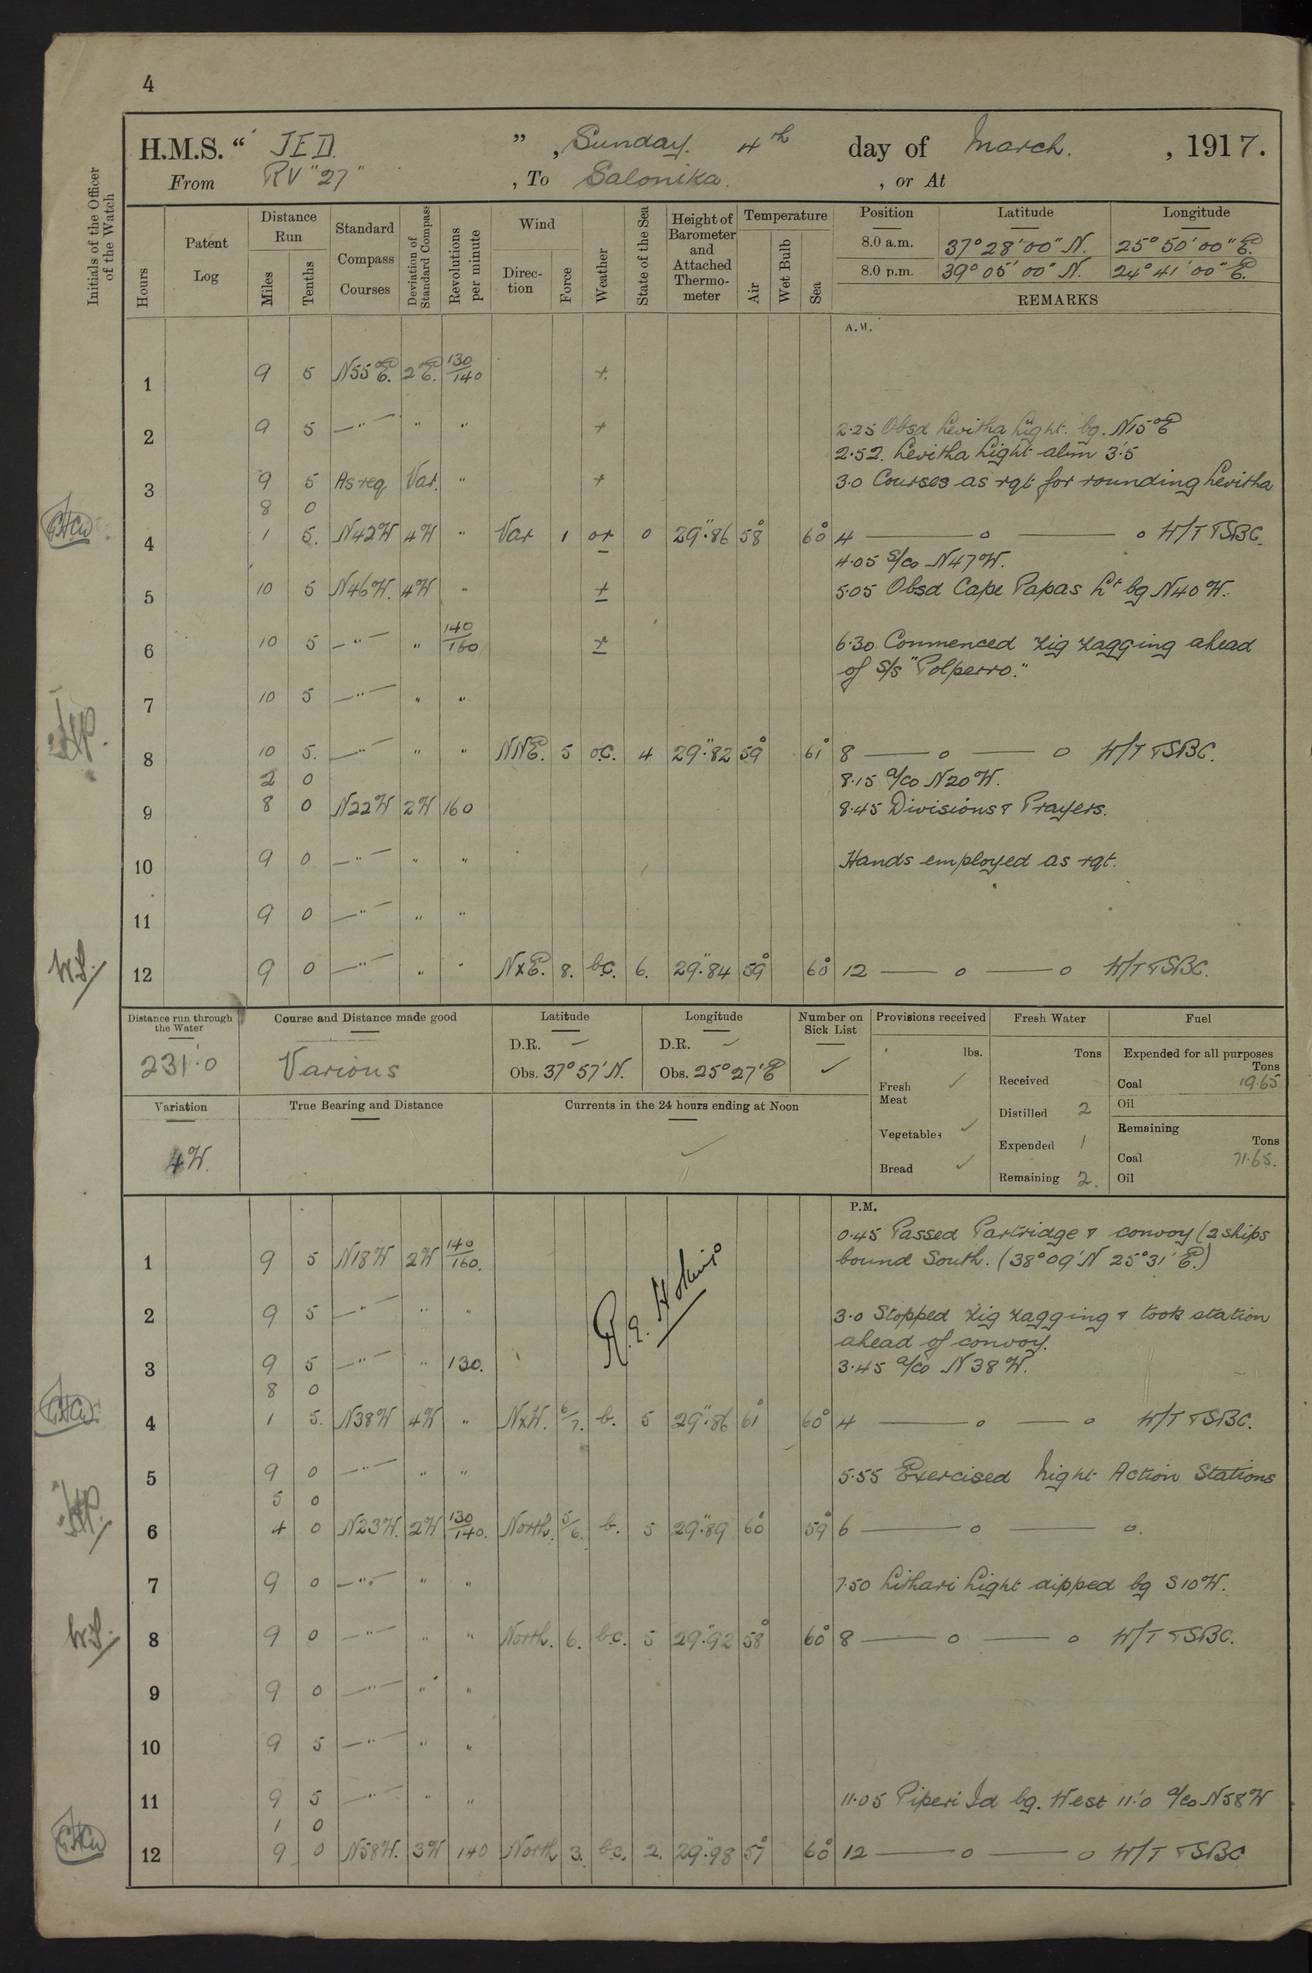 4
H.M.S. “ JED. ” , Sunday. 4th day of March. , 1917.
From RV "27" , To Salonika. , or At
Initials of the Officer of the Watch
Hours
Patent Log
Distance Run
Miles
Tenths
Standard Compass Courses
Deviation of Standard Compass
Revolutions per minute
Wind
Direction
Force
Weather
State of the Sea
Height of Barometer and Attached Thermometer
Temperature
Air
Wet Bulb
Sea
Position Latitude Longitude
8.0 a.m. 37° 28' 00" N. 25° 50' 00" E.
8.0 p.m. 39° 05' 00" N. 24° 41' 00" E.
REMARKS
A.M.
1 9 5 N55°E. 2°E. 130/140 +
2 9 5 —"— " " + 2.25 Obsd Levitha Light. bg. N15°E
2.52. Levitha Light abm 3'.5
3 9 5 As req Var. " + 3.0 Courses as rqt for rounding Levitha
8 0
4 1 5. N42W 4W " Var 1 or 0 29".86 58° 60° 4 — o — o W/T & SBC.
4.05 S/co N47W.
5 10 5 N46W. 4W " + 5.05 Obsd Cape Papas Lt bg N40W.
6 10 5 —"— " 140/160 + 6.30 Commenced zig zagging ahead
of S/s "Polperro."
7 10 5 —"— " "
8 10 5. —"— " " NNE. 5 o.c. 4 29".82 59° 61° 8 — o — o W/T & SBC.
2 0 8.15 a/co N20W.
9 8 0 N22W 2W 160 8.45 Divisions & Prayers.
10 9 0 —"— " " Hands employed as rqt.
11 9 0 —"— " "
W.S. 12 9 0 —"— " " NxE. 8. b.c. 6. 29".84 59° 60° 12 — o — o W/T & SBC.
Distance run through the Water
231.0
Course and Distance made good
Various
Latitude
D.R. —
Obs. 37° 57' N.
Longitude
D.R. —
Obs. 25° 27' E
Number on Sick List
✓
Provisions received
lbs.
Fresh Meat ✓
Vegetables ✓
Bread ✓
Fresh Water
Tons
Received
Distilled 2
Expended 1
Remaining 2.
Fuel
Expended for all purposes
Tons
Coal 19.65
Oil
Remaining
Tons
Coal 71.65.
Oil
Variation
4W.
True Bearing and Distance
Currents in the 24 hours ending at Noon
✓
P.M.
0.45 Passed Partridge & convoy (2 ships
1 9 5 N18W 2W 140/160. bound South. (38° 09' N 25° 31' E.)
2 9 5 —"— " " 3.0 Stopped zig zagging & took station
ahead of convoy.
3 9 5 —"— " 130. 3.45 a/co N38W.
8 0
4 1 5. N38W 4W " NxW. 6/7. b. 5 29".86 61° 60° 4 — o — o W/T & SBC.
5 9 0 —"— " " 5.55 Exercised Night Action Stations
5 0
6 4 0 N23W. 2W 130/140. North. 5/6. b. 5 29".89 60° 59° 6 — o — o.
7 9 0 —"— " " 7.50 Lithari Light dipped bg S10W.
W.S. 8 9 0 —"— " " North. 6. b.c. 5 29".92 58° 60° 8 — o — o W/T & SBC.
9 9 0 —"— " "
10 9 5 —"— " "
11 9 5 —"— " " 11.05 Piperi Id bg. West 11'.0 a/co N58W
1 0
12 9 0 N58W. 3W 140 North 3. b.c. 2. 29".98 57° 60° 12 — o — o W/T & SBC